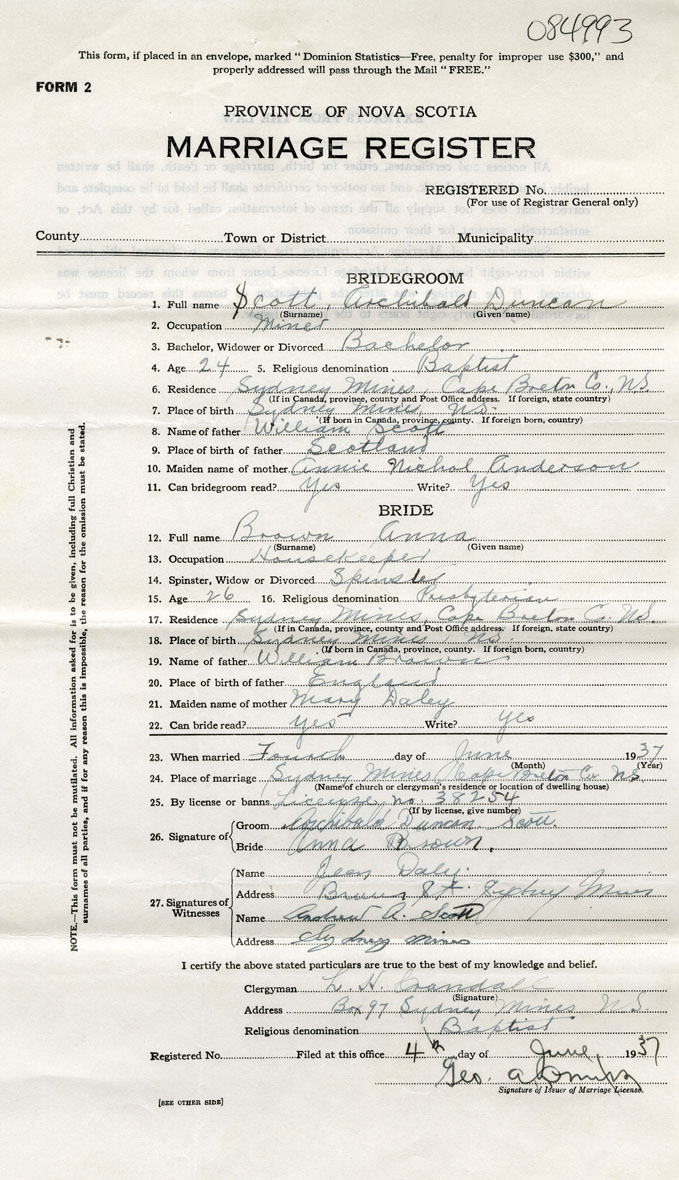 084993
This form, if placed in an envelope, marked "Dominion Statistics—Free, penalty for improper use $300," and
properly addressed will pass through the Mail "FREE."
FORM 2
PROVINCE OF NOVA SCOTIA
MARRIAGE REGISTER
REGISTERED No.
(For use of Registrar General only)
County Town or District Municipality
BRIDEGROOM
1. Full name Scott, Archibald Duncan
(Surname) (Given name)
2. Occupation Miner
3. Bachelor, Widower or Divorced Bachelor
4. Age 24 5. Religious denomination Baptist
6. Residence Sydney Mines, Cape Breton Co., N.S.
(If in Canada, province, county and Post Office address. If foreign, state country)
7. Place of birth Sydney Mines, N.S.
(If born in Canada, province, county. If foreign born, country)
8. Name of father William Scott
9. Place of birth of father Scotland
10. Maiden name of mother Annie Nichol Anderson
11. Can bridegroom read? Yes Write? Yes
BRIDE
12. Full name Brown Anna
(Surname) (Given name)
13. Occupation Housekeeper
14. Spinster, Widow or Divorced Spinster
15. Age 26 16. Religious denomination Presbyterian
17. Residence Sydney Mines, Cape Breton Co. N.S.
(If in Canada, province, county and Post Office address. If foreign, state country)
18. Place of birth Sydney Mines N.S.
(If born in Canada, province, county. If foreign born, country)
19. Name of father William Brown
20. Place of birth of father England
21. Maiden name of mother Mary Daley
22. Can bride read? Yes Write? Yes
23. When married Fourth day of June 1937
(Month) (Year)
24. Place of marriage Sydney Mines, Cape Breton Co. N.S.
(Name of church or clergyman's residence or location of dwelling house)
25. By license or banns License no. 38254
(If by license, give number)
26. Signature of
Groom Archibald Duncan Scott
Bride Anna Brown
27. Signatures of Witnesses
Name Jean Daley
Address St. Sydney Mines
Name Andrew A. Scott
Address Sydney mines
I certify the above stated particulars are true to the best of my knowledge and belief.
Clergyman L. H. Crandall
(Signature)
Address Box 97 Sydney Mines N.S.
Religious denomination Baptist
Registered No. Filed at this office 4th day of June, 1937
Geo. A.
Signature of Issuer of Marriage License.
[SEE OTHER SIDE]
NOTE.—This form must not be mutilated. All information asked for is to be given, including full Christian and
surnames of all parties, and if for any reason this is impossible, the reason for the omission must be stated.